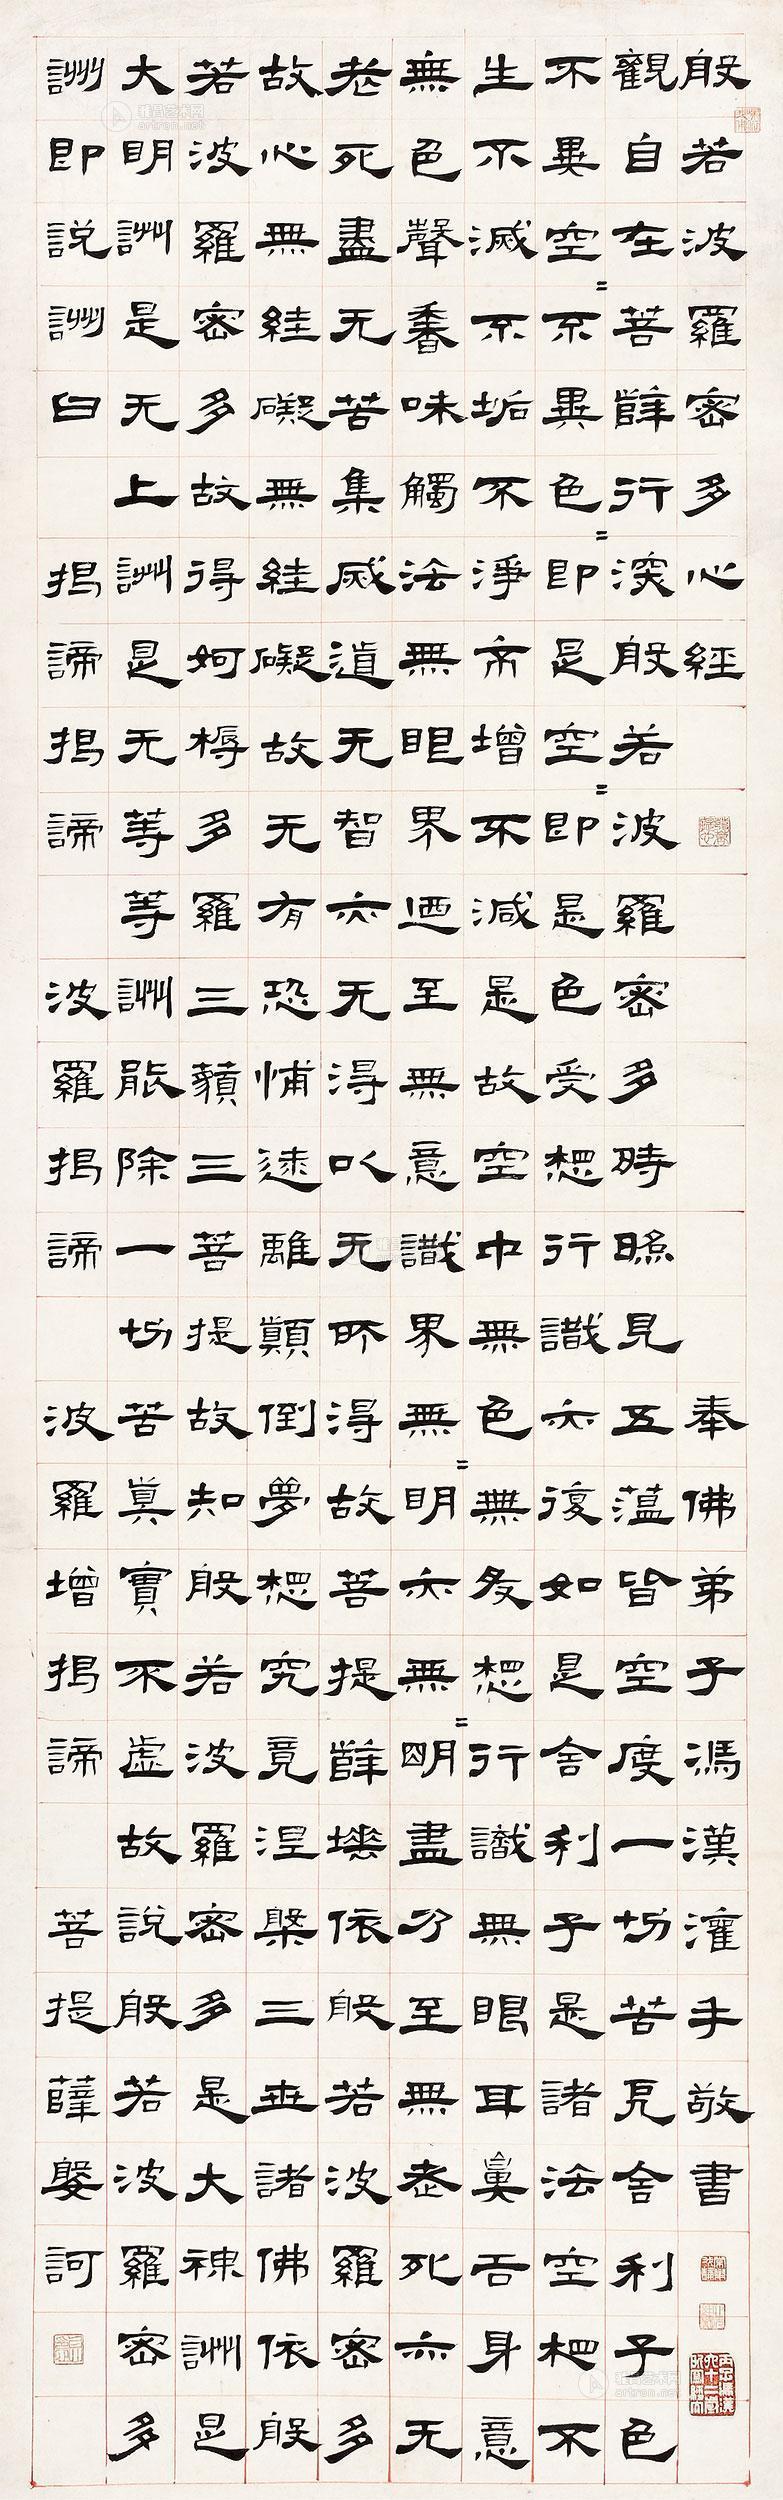 般若波羅密多心經 奉佛弟子馮漢濯手敬書
觀自在菩薛行深般若波羅密多時照見五薀皆空度一切苦厄舍利子色
不異空=不異色=即是空=即是色受想行識亦復如是舍利子是諸法空相不
生不滅不垢不淨不增不減是故空中無色無受想行識無眼耳鼻舌身意
無色聲香味觸法無眼界迺至無意識界無=明亦無=明盡乃至無老死亦无
老死盡无苦集滅道无智亦无得以无所得故菩提薛埵依般若波羅密多
故心無絓礙無絓礙故无有恐悑遠離顛倒夢想究竟涅槃三世諸佛依般
若波羅密多故得妸槈多羅三藐三菩提故知般若波羅密多是大神詶是
大明詶是无上詶是无等等詶能除一切苦真實不虛故說般若波羅密多
詶即說詶曰 揭諦揭諦 波羅揭諦 波羅增揭諦 菩提薛婆訶
雅昌艺术网
artron.net